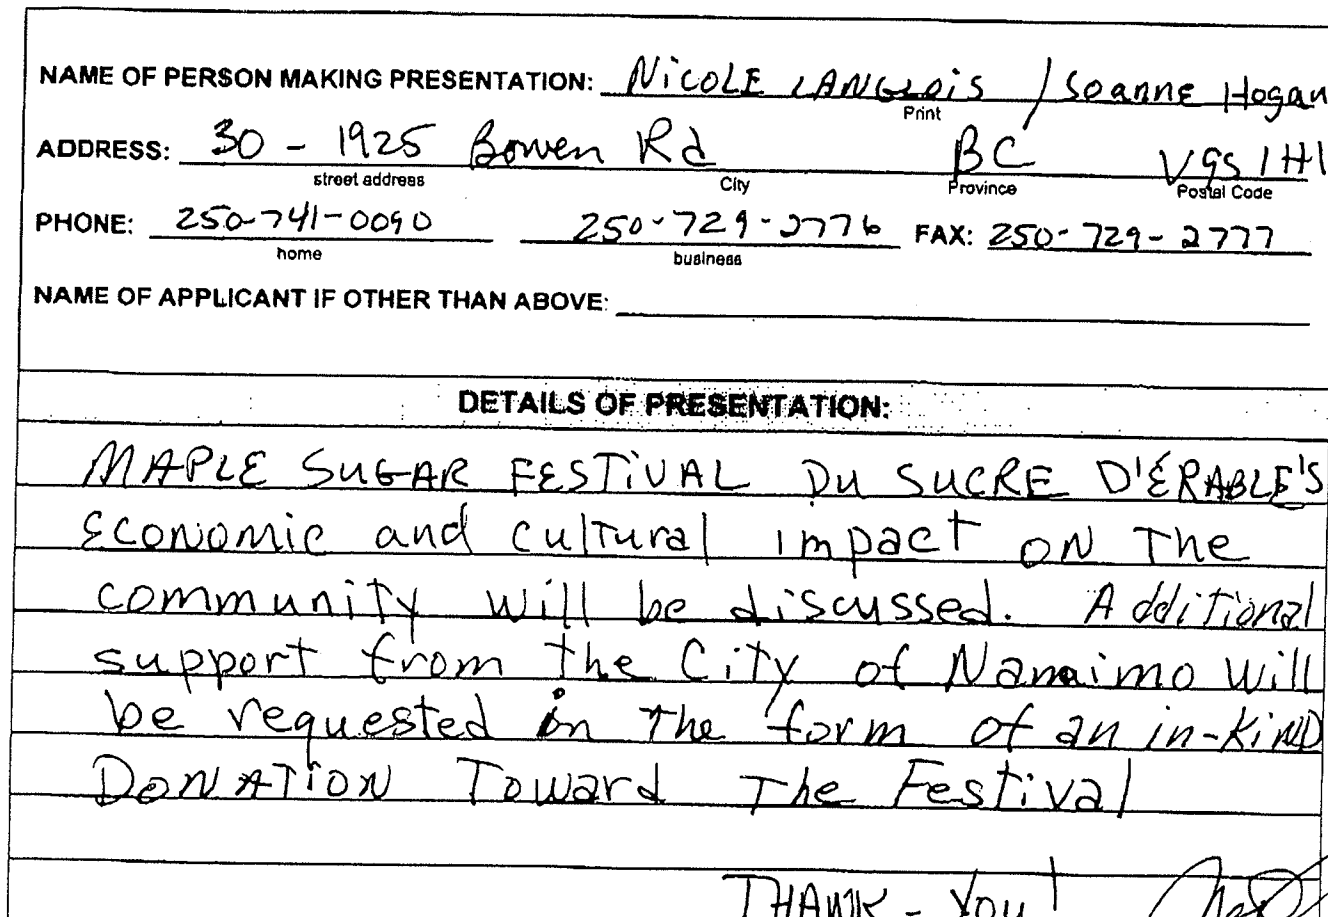 NAME OF PERSON MAKING PRESENTATION: NICOLE LANGLOIS / Joanne Hogan
Print
ADDRESS: 30 - 1925 Bowen Rd BC V9S 1H1
street address City Province Postal Code
PHONE: 250-741-0090 250-729-2776 FAX: 250-729-2777
home business
NAME OF APPLICANT IF OTHER THAN ABOVE:
DETAILS OF PRESENTATION:
MAPLE SUGAR FESTIVAL DU SUCRE D'ÉRABLE'S
Economic and cultural impact on The
community will be discussed. Additional
support from the City of Nanaimo will
be requested in the form of an in-KIND
DONATION Toward The Festival
THANK-YOU!